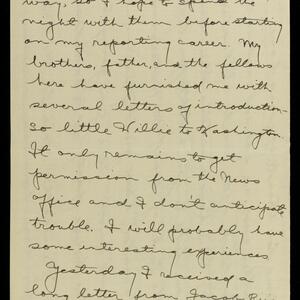 way, so I hope to spend the
night with them before starting
on my reporting career. My
brothers, father, and the fellows
here have furnished me with
several letters of introduction—
So little Willie to Washington.
It only remains to get
permission from the News
office and I don't anticipate
trouble. I will probably have
some interesting experiences
Yesterday I received a
long letter from Jacob